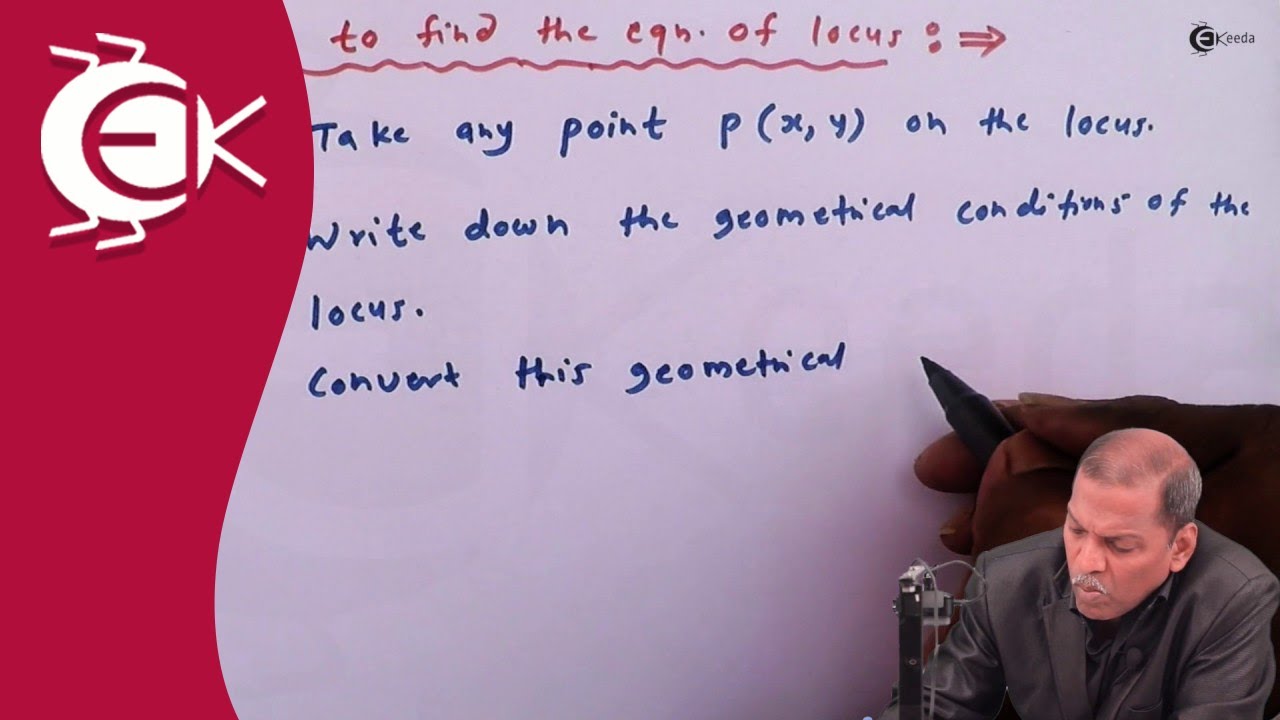 to find the eqn. of locus : ⇒
Take any point P(x, y) on the locus.
Write down the geometrical conditions of the
locus.
Convert this geometrical
EK
EKeeda